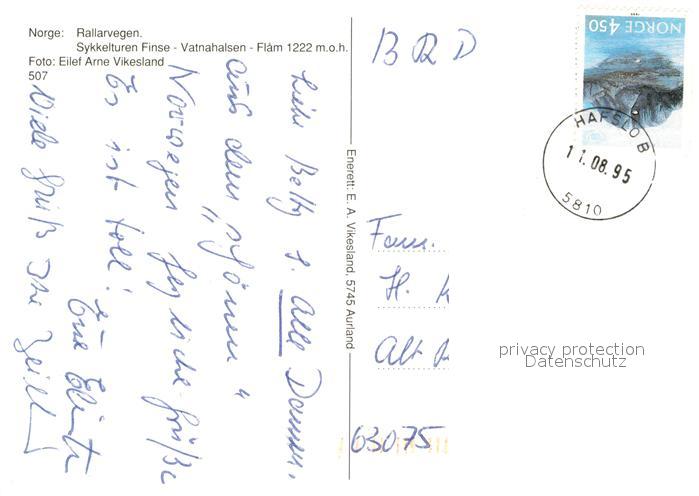 Norge: Rallarvegen.
Sykkelturen Finse - Vatnahalsen - Flåm 1222 m.o.h.
Foto: Eilef Arne Vikesland
507
Liebe Betty u. Alle Damen,
aus dem "schönen"
Norwegen herzliche Grüße
Es ist toll!
Eure
Viele Grüße Ihre
Enerett: E. A. Vikesland, 5745 Aurland
BRD
Fam.
H. K
Alt
63075
NORGE 4,50
HAFSLO B
11.08.95
5810
privacy protection
Datenschutz